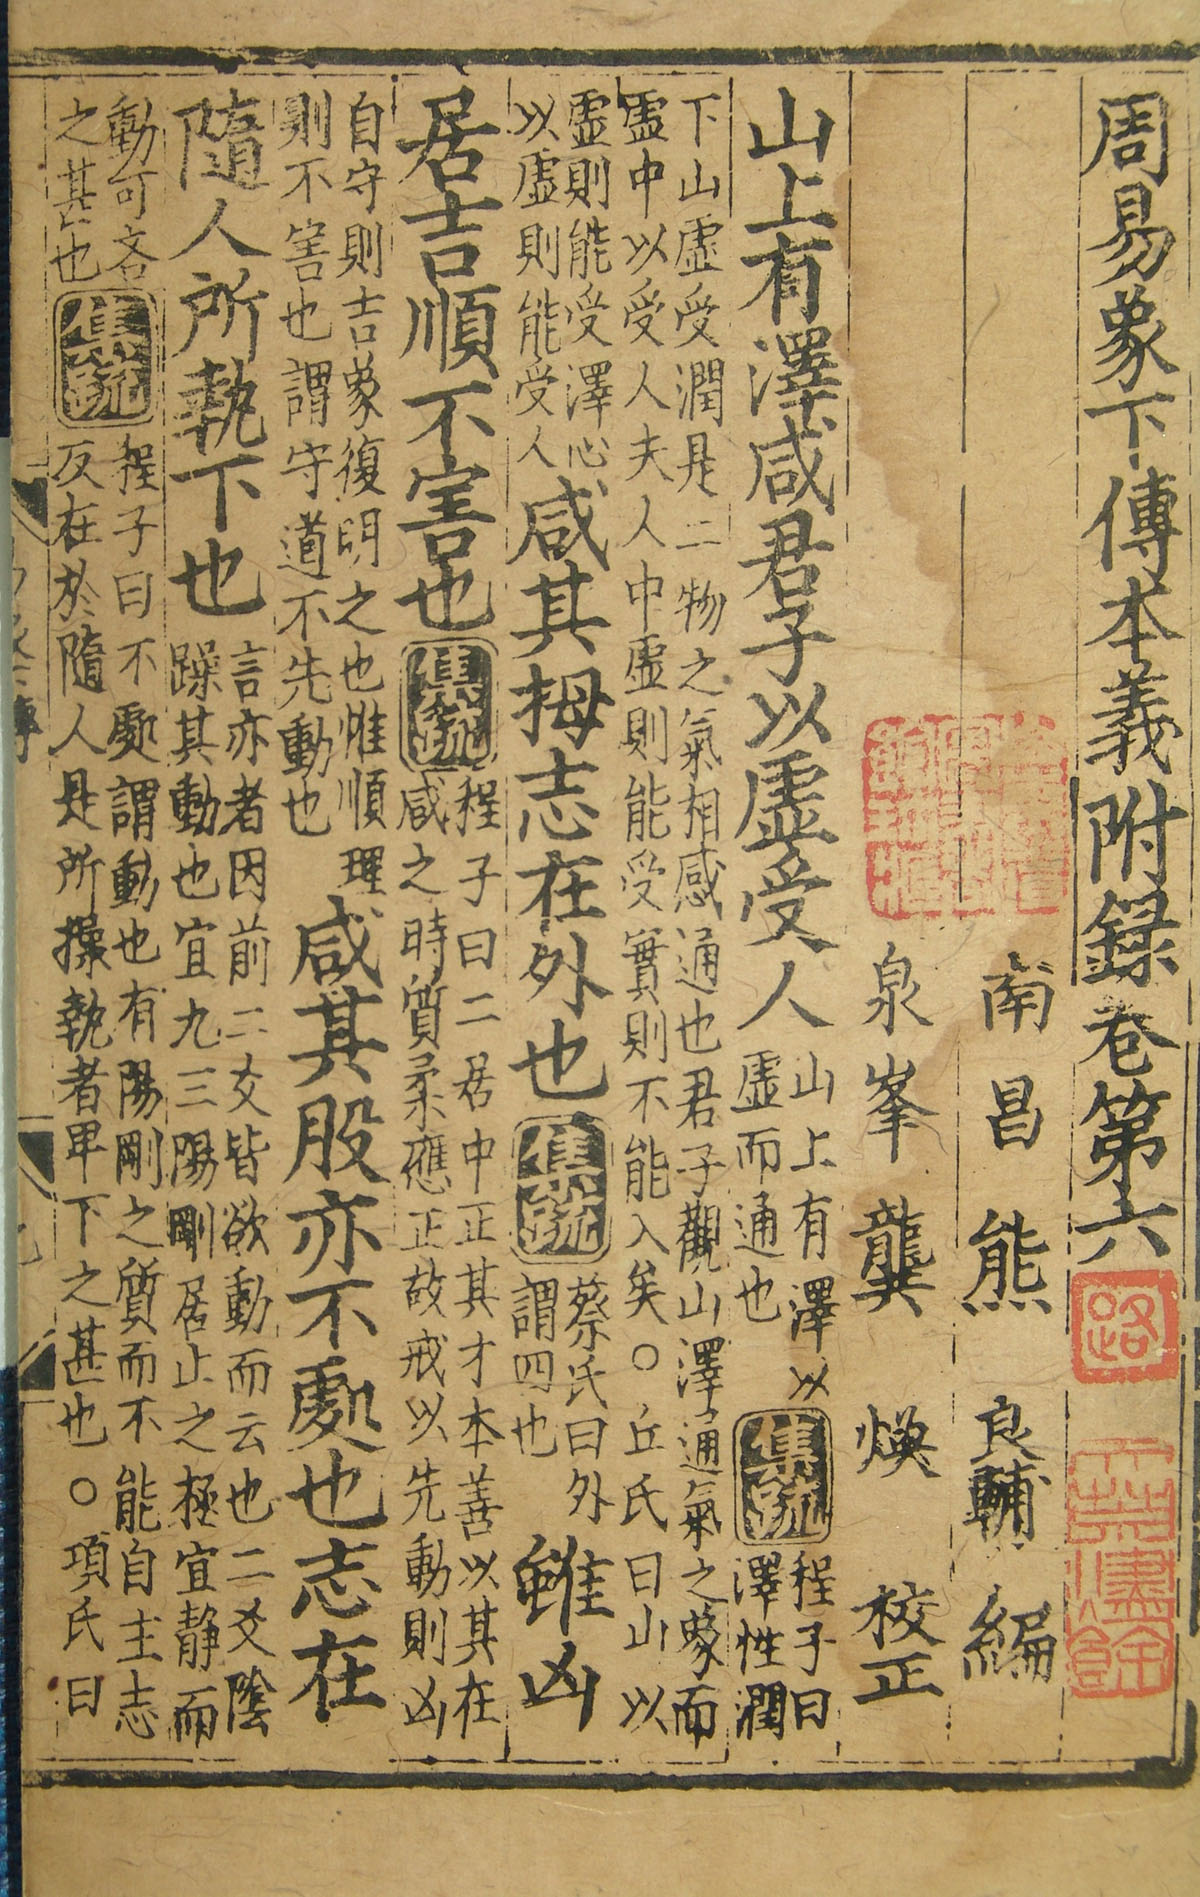 周易象下傳本義附録卷第六
南昌熊良輔編
泉峯龔煥校正
山上有澤咸君子以虛受人
山上有澤以
虛而通也
集疏
程子曰
澤性潤
下山虛受潤是二物之氣相感通也君子觀山澤通氣之象而
虛中以受人夫人中虛則能受實則不能入矣○丘氏曰山以
虛則能受澤心
以虛則能受人
咸其拇志在外也
集疏
蔡氏曰外
謂四也
雖凶
居吉順不害也
集疏
程子曰二居中正其才本善以其在
咸之時質柔應正故戒以先動則凶
自守則吉象復明之也惟順理
則不害也謂守道不先動也
咸其股亦不處也志在
隨人所執下也
言亦者因前二爻皆欲動而云也二爻陰
躁其動也宜九三陽剛居止之極宜静而
動可吝
之甚也
集疏
程子曰不處謂動也有陽剛之質而不能自主志
反在於隨人是所操執者卑下之甚也○項氏曰